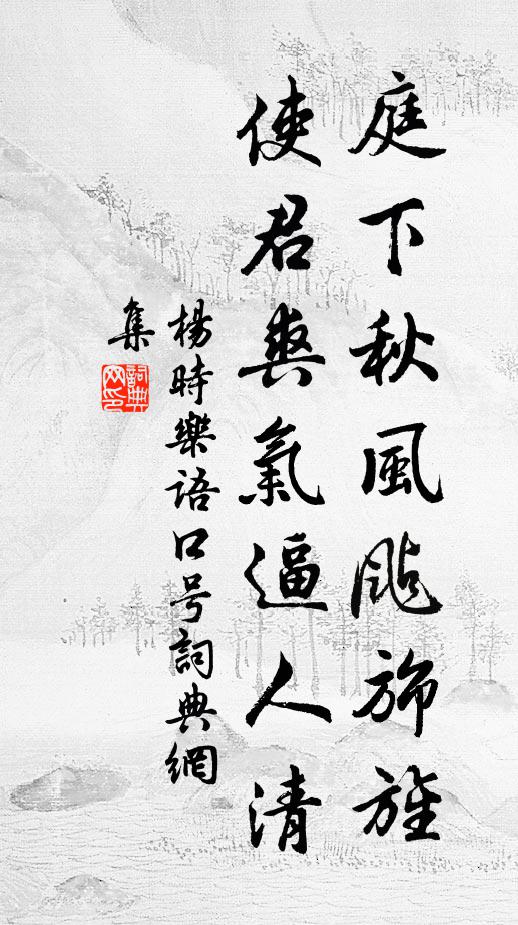 庭下秋風颭旆旌
使君爽氣逼人清
楊時樂語口号詞典網
集
詞典網印